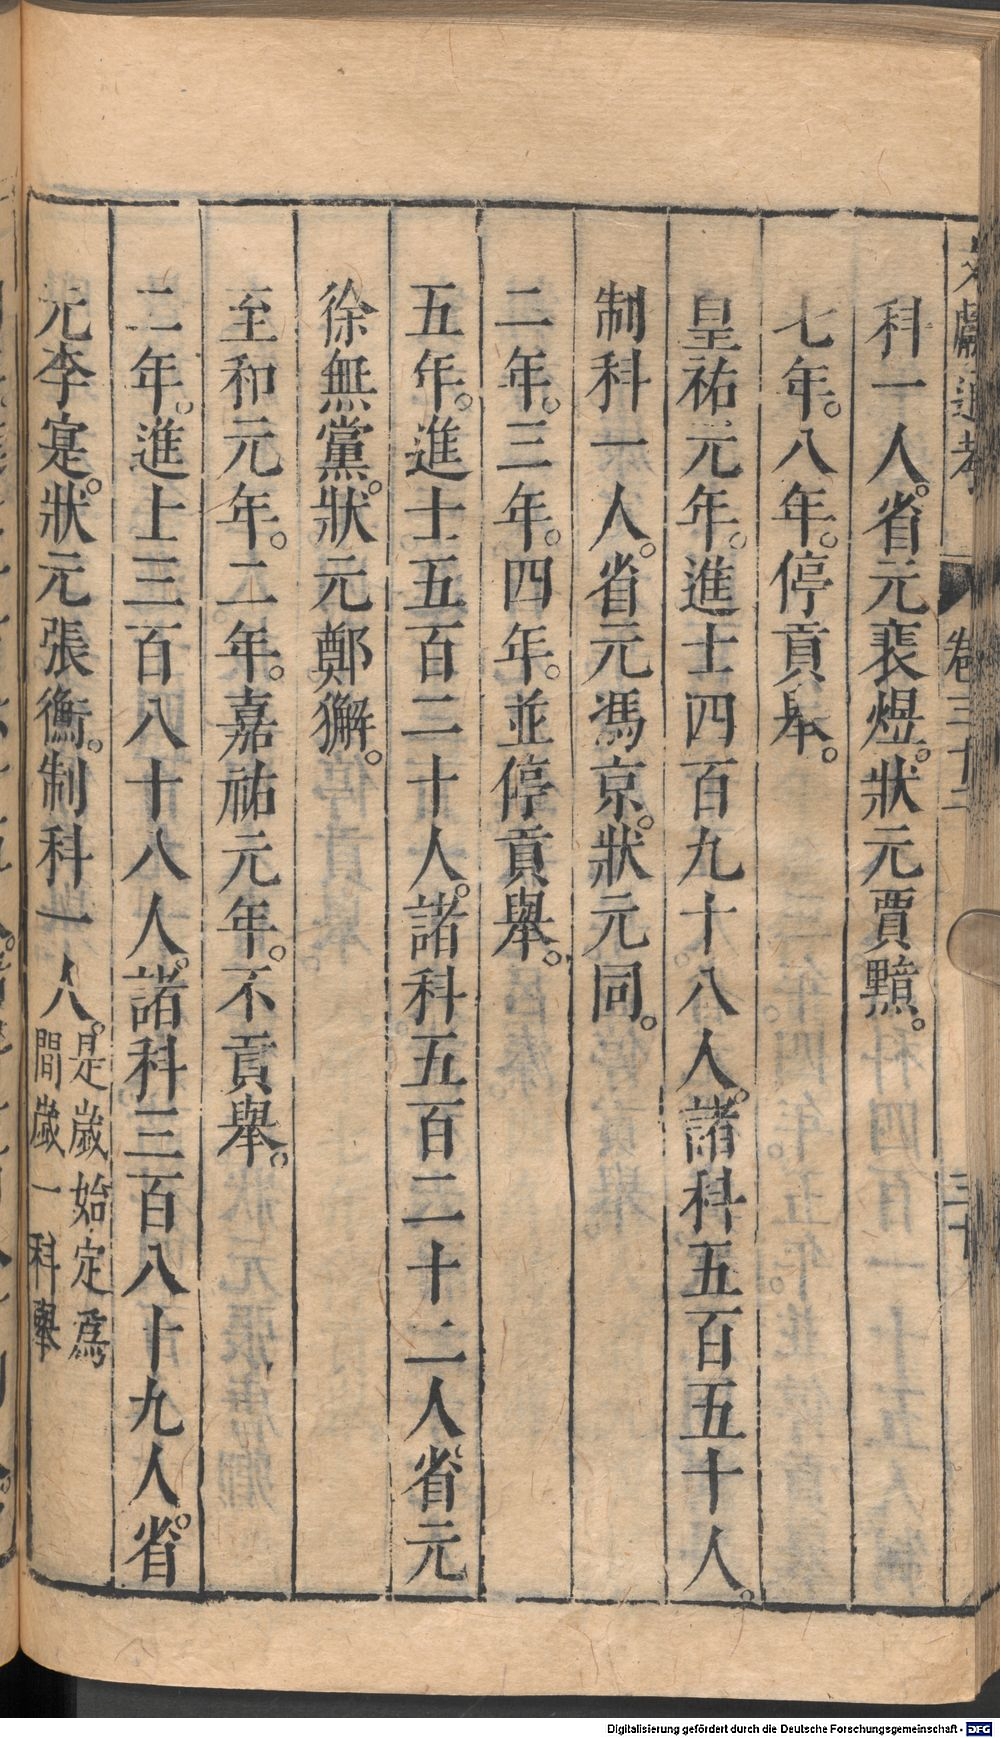 文獻通考 卷三十二 三十
科一人。省元裴煜。狀元賈黯。
七年。八年。停貢舉。
皇祐元年。進士四百九十八人。諸科五百五十人。
制科一人。省元馮京。狀元同。
二年。三年。四年。並停貢舉。
五年。進士五百二十人。諸科五百二十二人省元
徐無黨。狀元鄭獬。
至和元年。二年。嘉祐元年。不貢舉。
二年。進士三百八十八人。諸科三百八十九人。省
元李寔。狀元張衡。制科一人。是歲始定爲
間歲一科舉
Digitalisierung gefördert durch die Deutsche Forschungsgemeinschaft - DFG